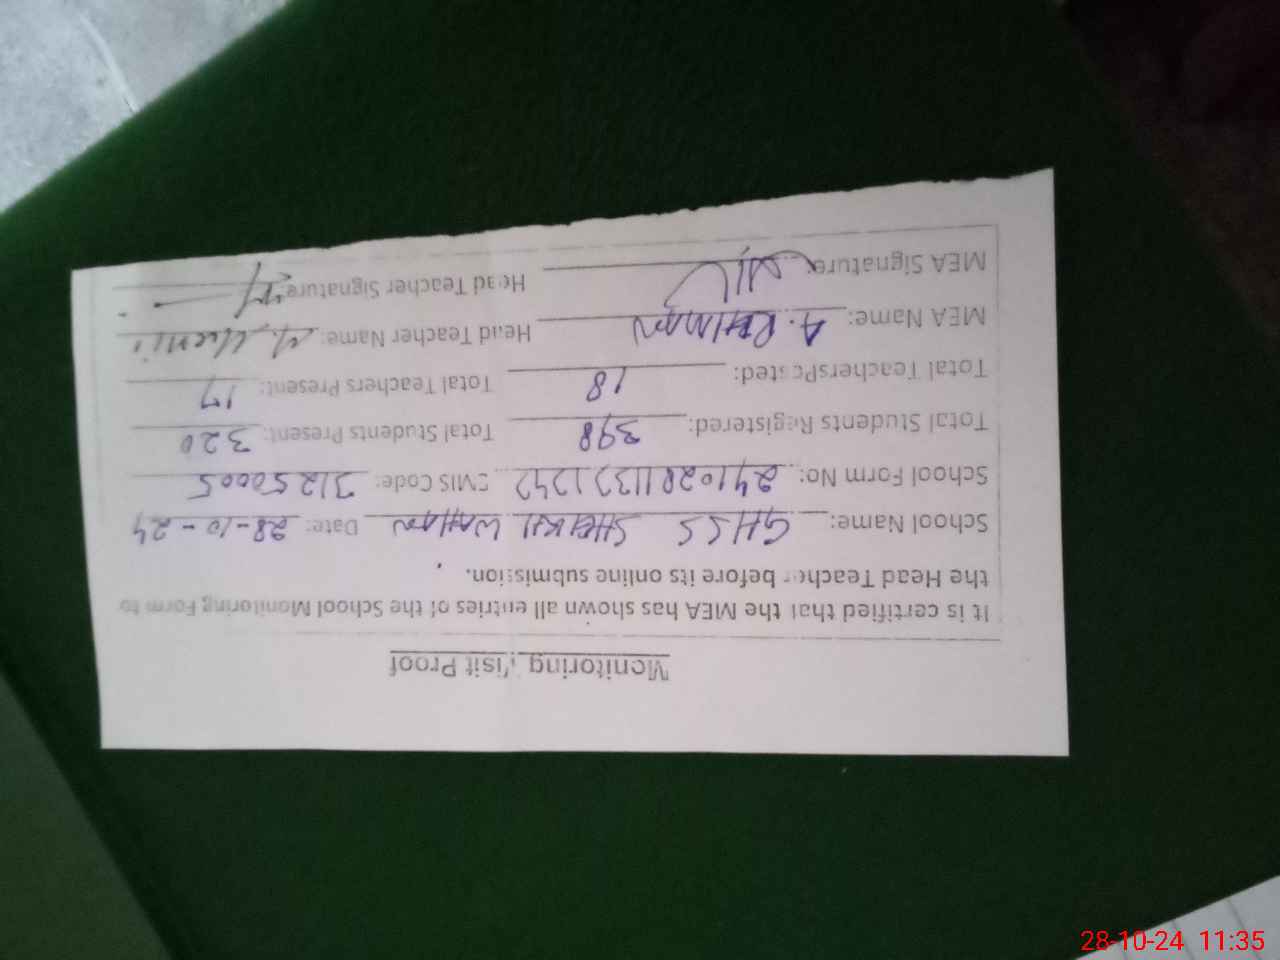 Monitoring Visit Proof
It is certified that the MEA has shown all entries of the School Monitoring Form to
the Head Teacher before its online submission.
School Name: GHSS SHEIKH WAHAN Date: 28-10-24
School Form No: EMIS Code: 31250005
Total Students Registered: 398 Total Students Present: 320
Total TeachersPosted: 18 Total Teachers Present: 17
MEA Name: A. REHMAN Head Teacher Name:
MEA Signature: Head Teacher Signature:
28-10-24 11:35